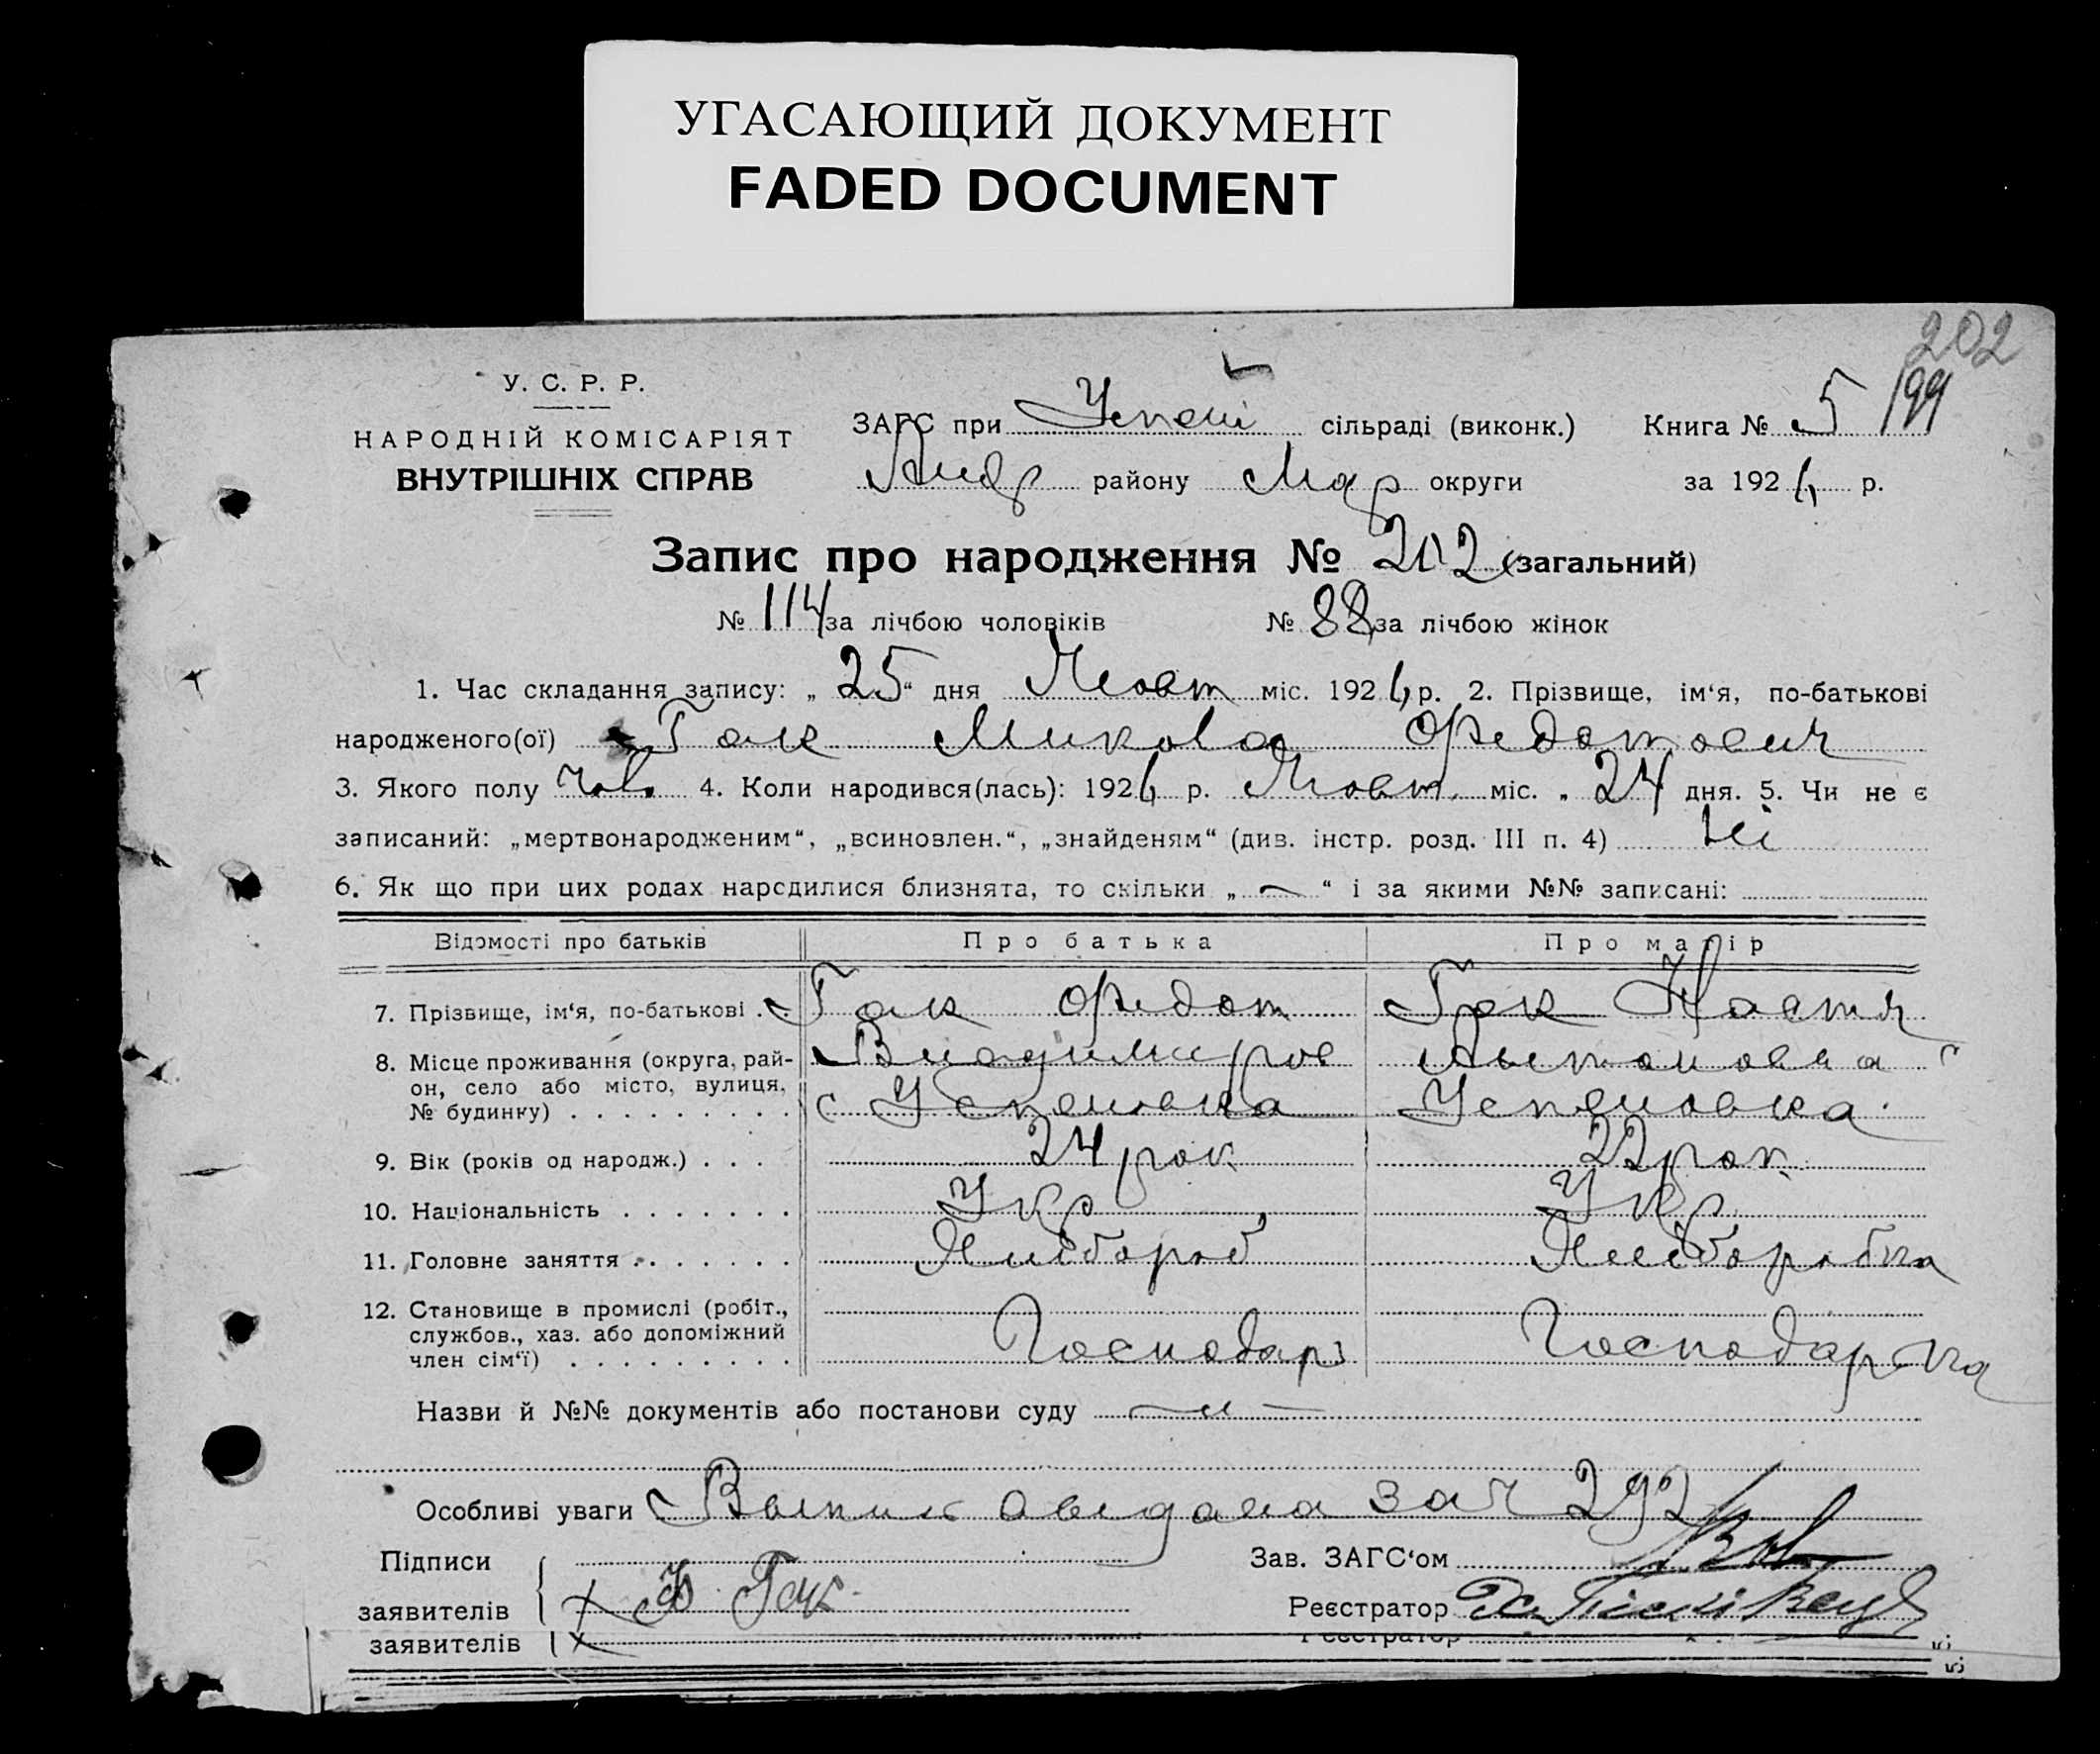 УГАСАЮЩИЙ ДОКУМЕНТ
FADED DOCUMENT
202
199
У. С. Р. Р.
НАРОДНІЙ КОМІСАРІЯТ
ВНУТРІШНІХ СПРАВ
ЗАГС при Успені сільраді (виконк.) Книга № 5
Андр району Мар округи за 1926 р.
Запис про народження № 202 (загальний)
№ 114 за лічбою чоловіків № 88 за лічбою жінок
1. Час складання запису: „25“ дня Жовт міс. 1926 р. 2. Прізвище, ім‘я, по-батькові
народженого(ої) Гак Микола Федотович
3. Якого полу чол. 4. Коли народився(лась): 1926 р. Жовт. міс. „ 24 дня. 5. Чи не є
записаний: „мертвонародженим“, „всиновлен.“, „знайденям“ (див. інстр. розд. III п. 4) Ні
6. Як що при цих родах народилися близнята, то скільки „ — “ і за якими №№ записані:
Відомості про батьків Про батька Про матір
7. Прізвище, ім‘я, по-батькові . . Гак Федот Гак Настя
8. Місце проживання (округа, рай- Владимиров Антоновна
он, село або місто, вулиця, с Успеновка Успеновка
№ будинку) . . . . . . . . .
9. Вік (років од народж.) . . . 24 рок 22 рок
10. Національність . . . . . . . Укр Укр
11. Головне заняття . . . . . . . Хлібороб Хліборобка
12. Становище в промислі (робіт.,
службов., хаз. або допоміжний Господарь Господарка
член сім‘ї) . . . . . . . . .
Назви й №№ документів або постанови суду — „ —
Особливі уваги Выпись за ч 292
Підписи Зав. ЗАГС‘ом
заявителів Ф Гак Реєстратор
заявителів Реєстратор